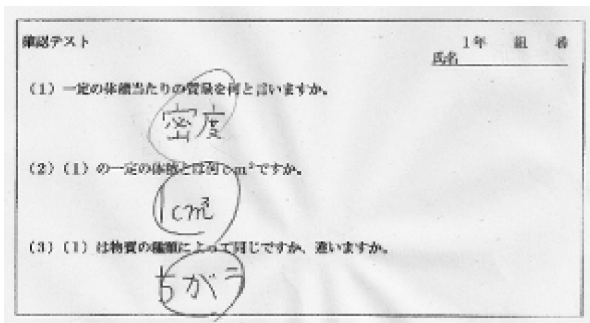 確認テスト
1年 組 番
氏名
(1) 一定の体積当たりの質量を何と言いますか。
密度
(2) (1) の一定の体積とは何cm³ですか。
1cm³
(3) (1) は物質の種類によって同じですか、違いますか。
ちがう